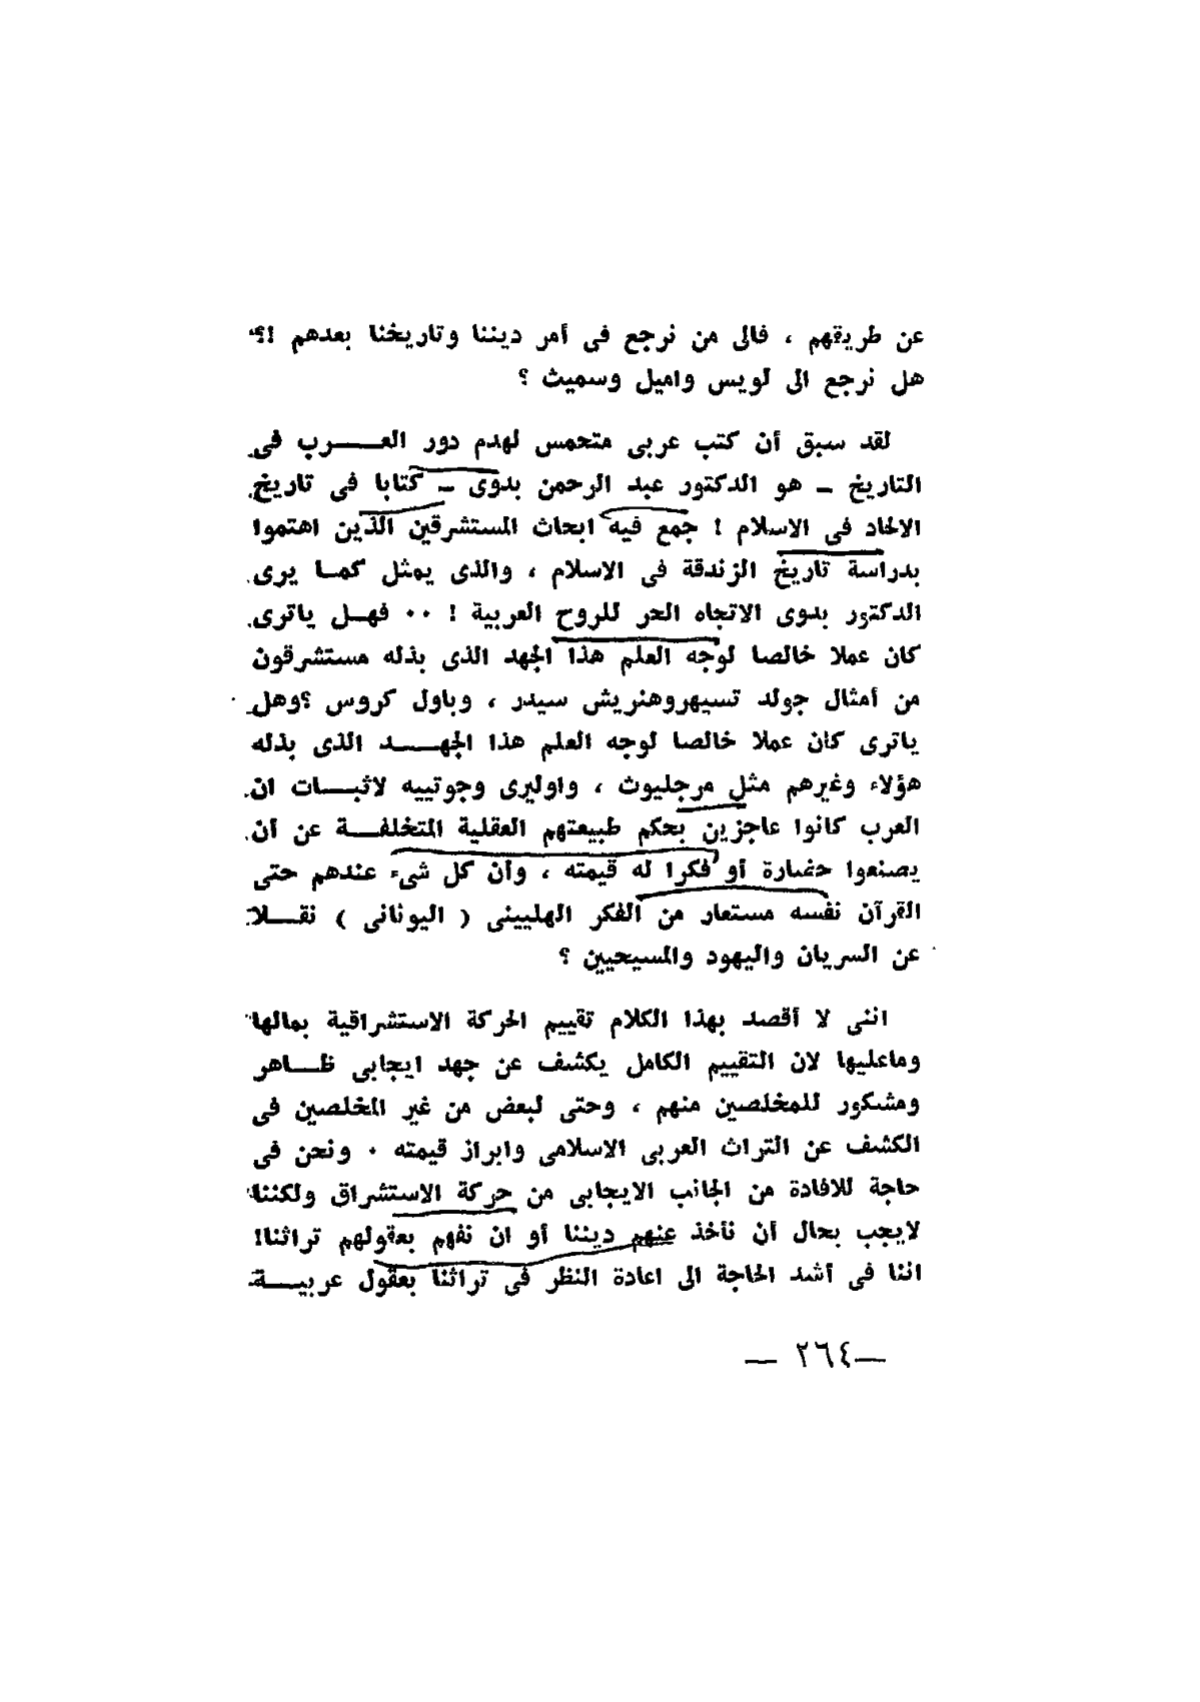 عن طريقهم ، فالى من نرجع فى أمر ديننا وتاريخنا بعدهم !؟
هل نرجع الى لويس واميل وسميث ؟
لقد سبق أن كتب عربى متحمس لهدم دور العـــرب فى
التاريخ ــ هو الدكتور عبد الرحمن بدوى ــ كتابا فى تاريخ
الالحاد فى الاسلام ! جمع فيه ابحاث المستشرقين الذين اهتموا
بدراسة تاريخ الزندقة فى الاسلام ، والذى يمثل كمـا يرى
الدكتور بدوى الاتجاه الحر للروح العربية ! ٠٠ فهـل ياترى
كان عملا خالصا لوجه العلم هذا الجهد الذى بذله مستشرقون
من أمثال جولد تسيهروهنريش سيدر ، وباول كروس ؟وهل
ياترى كان عملا خالصا لوجه العلم هذا الجهـــد الذى بذله
هؤلاء وغيرهم مثل مرجليوث ، واوليرى وجوتييه لاثبـــات ان
العرب كانوا عاجزين بحكم طبيعتهم العقلية المتخلفـــة عن أن
يصنعوا حضارة أو فكرا له قيمته ، وأن كل شىء عندهم حتى
القرآن نفسه مستعار من الفكر الهلينى ( اليونانى ) نقـــلا
عن السريان واليهود والمسيحيين ؟
اننى لا أقصد بهذا الكلام تقييم الحركة الاستشراقية بمالها
وماعليها لان التقييم الكامل يكشف عن جهد ايجابى ظـــاهر
ومشكور للمخلصين منهم ، وحتى لبعض من غير المخلصين فى
الكشف عن التراث العربى الاسلامى وابراز قيمته ٠ ونحن فى
حاجة للافادة من الجانب الايجابى من حركة الاستشراق ولكننا
لايجب بحال أن نأخذ عنهم ديننا أو ان نفهم بعقولهم تراثنا!
اننا فى أشد الحاجة الى اعادة النظر فى تراثنا بعقول عربيـــة
— ٢٦٤ —